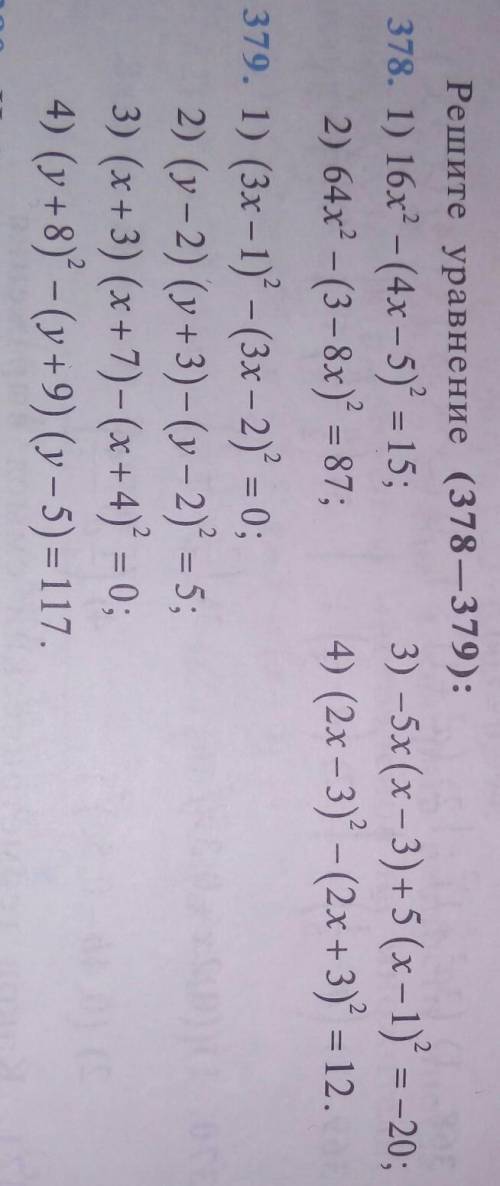 Решите уравнение (378—379):
378. 1) 16x² – (4x – 5)² = 15; 3) –5x(x – 3) + 5(x – 1)² = –20;
2) 64x² – (3 – 8x)² = 87; 4) (2x – 3)² – (2x + 3)² = 12.
379. 1) (3x – 1)² – (3x – 2)² = 0;
2) (y – 2)(y + 3) – (y – 2)² = 5;
3) (x + 3)(x + 7) – (x + 4)² = 0;
4) (y + 8)² – (y + 9)(y – 5) = 117.